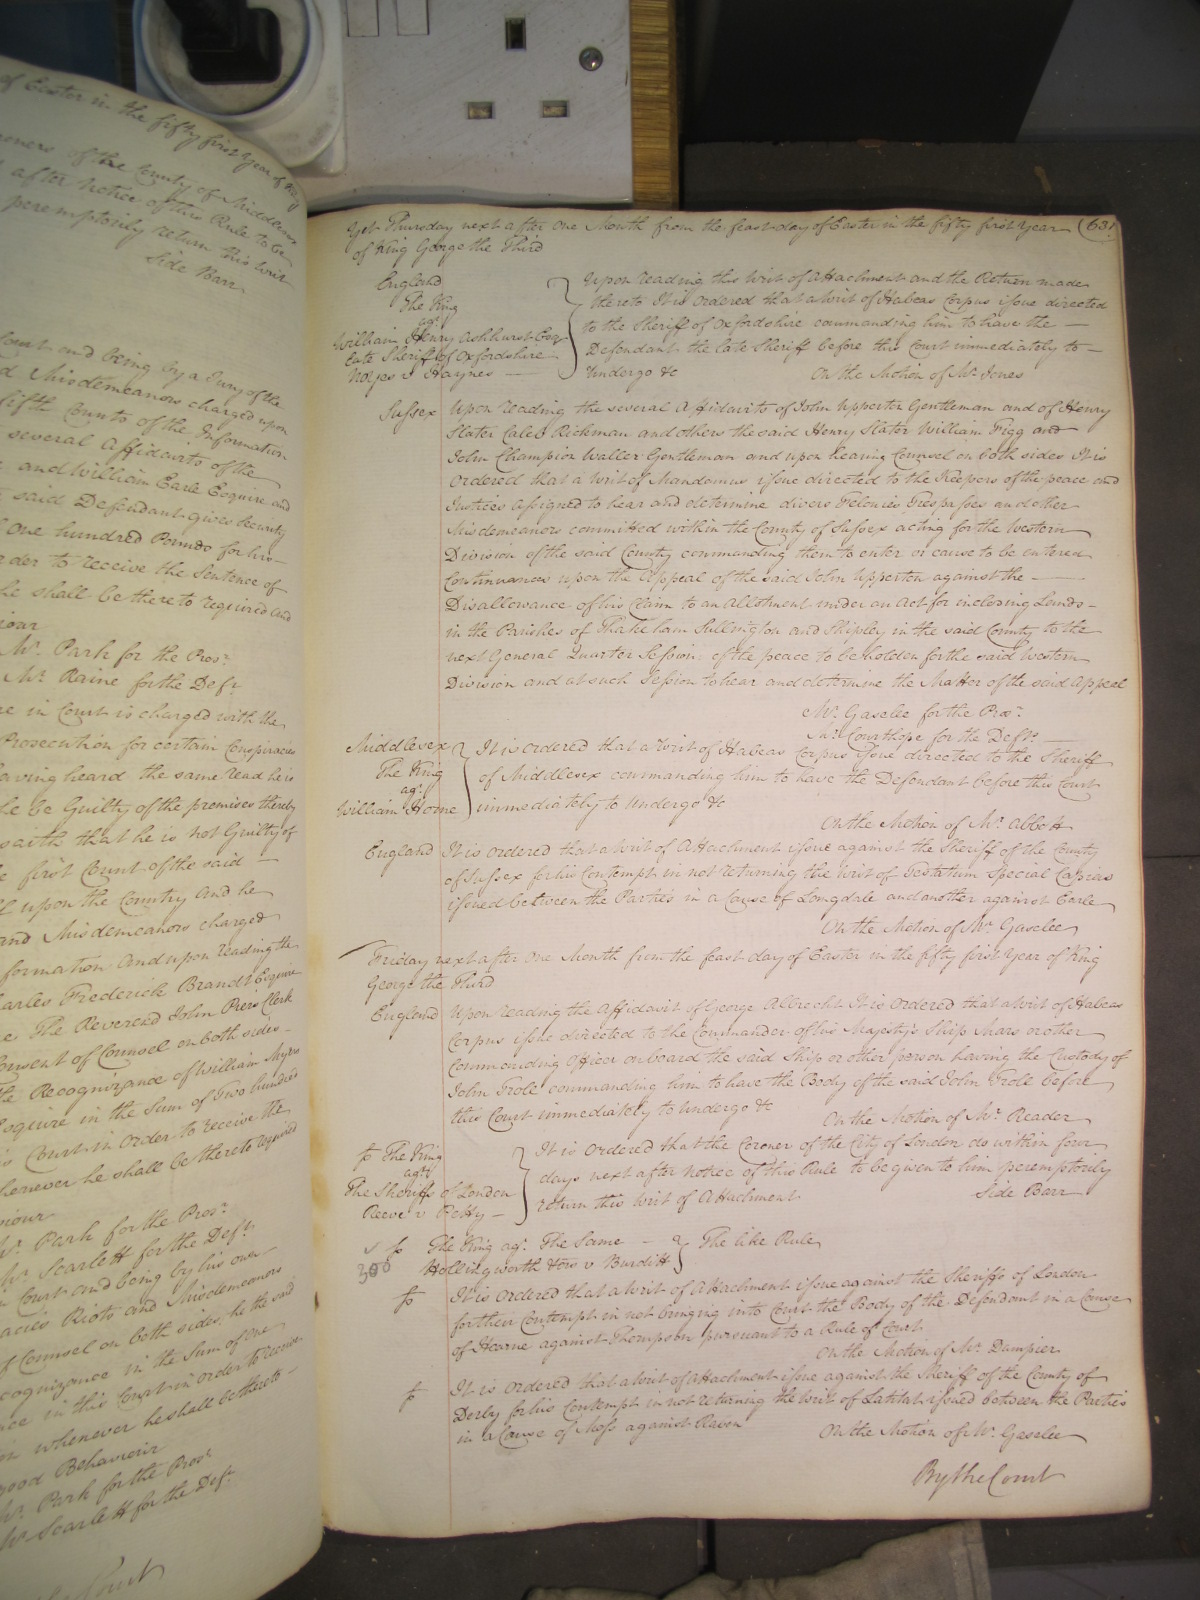 of Easter in the fifty first Year of King
oners of the County of Middlesex
after Notice of this Rule to be
peremptorily return this Writ
Side Barr
Court and being by a Jury of the
Misdemeanors charged upon
fifth Counts of the Information
several Affidavits of the
and William Earle Esquire and
said Defendant gives Security
One hundred Pounds for his
der to receive the Sentence of
he shall be thereto required and
iour
Mr. Park for the Prosr.
Mr. Raine for the Deft
re in Court is charged with the
Prosecution for certain Conspiracies
having heard the same read he is
he be Guilty of the premises thereby
saith that he is not Guilty of
first Count of the said
upon the Country And he
and Misdemeanors charged
formation And upon reading the
harles Frederick Brandt Esquire
The Reverend John Piers Clerk
onsent of Counsel on both sides
the Recognizance of William
Esquire in the Sum of Two hundred
Court in Order to receive the
henever he shall be thereto required
viour
Mr. Park for the Prosr.
Mr. Scarlett for the Deft.
Court and being by his own
acies Riots and Misdemeanors
of Counsel on both sides he the said
ecognizance in the Sum of One
in this Court in order to receive
whenever he shall be thereto
good Behaviour
Mr. Park for the Prosr.
Mr. Scarlett for the Deft.
Court
Yet Thursday next after One Month from the feast day of Easter in the fifty first Year (63)
of King George the Third
England
The King
agt.
William Henry Ashhurst Esqr.
late Sheriff of Oxfordshire
Noyes v Haynes
Upon reading this Writ of Attachment and the Return made
thereto It is Ordered that a Writ of Habeas Corpus issue directed
to the Sheriff of Oxfordshire commanding him to have the
Defendant the late Sheriff before this Court immediately to
Undergo &c On the Motion of Mr. Jones
Sussex Upon reading the several Affidavits of John Upperton Gentleman and of Henry
Slater Caleb Rickman and others the said Henry Slater William Figg and
John Champion Waller Gentleman and upon hearing Counsel on both sides It is
Ordered that a Writ of Mandamus issue directed to the Keepers of the peace and
Justices Assigned to hear and determine divers Felonies Trespasses and other
Misdemeanors committed within the County of Sussex acting for the Western
Division of the said County commanding them to enter or cause to be entered
Continuances upon the Appeal of the said John Upperton against the
Disallowance of his Claim to an Allotment under an Act for inclosing Lands
in the Parishes of Thakeham Sullington and Shipley in the said County to the
next General Quarter Session of the peace to be holden for the said Western
Division and at such Session to hear and determine the Matter of the said Appeal
Mr. Gaselee for the Prosr.
Mr. Courthope for the Defts.
Middlesex
The King
agt.
William Horne
It is ordered that a Writ of Habeas Corpus issue directed to the Sheriff
of Middlesex commanding him to have the Defendant before this Court
immediately to Undergo &c
On the Motion of Mr. Abbott
England It is ordered that a Writ of Attachment issue against the Sheriff of the County
of Sussex for his Contempt in not returning the Writ of testatum Special Capias
issued between the Parties in a Cause of Longdale and another against Earle
On the Motion of Mr. Gaselee
Friday next after One Month from the feast day of Easter in the fifty first Year of King
George the Third
England Upon reading the Affidavit of George Albrecht It is Ordered that a Writ of Habeas
Corpus issue directed to the Commander of his Majesty's Ship Mars or other
Commanding Officer on board the said Ship or other person having the Custody of
John Trole commanding him to have the Body of the said John Trole before
this Court immediately to Undergo &c On the Motion of Mr. Reader
The King
agst
The Sheriffs of London
Reeve v Petty
It is Ordered that the Coroner of the City of London do within four
days next after notice of this Rule to be given to him peremptorily
return this Writ of Attachment Side Barr
The King agt. The Same The like Rule
300 Hollingworth & ors v Burditt
It is ordered that a writ of Attachment issue against the Sheriffs of London
for their Contempt in not bringing into Court the Body of the Defendant in a Cause
of Hearne against Thompson pursuant to a Rule of Court
On the Motion of Mr. Dampier
It is Ordered that a Writ of Attachment issue against the Sheriff of the County of
Derby for his Contempt in not returning the Writ of Latitat issued between the Parties
in a Cause of Moss against Raven
On the Motion of Mr. Gaselee
By the Court